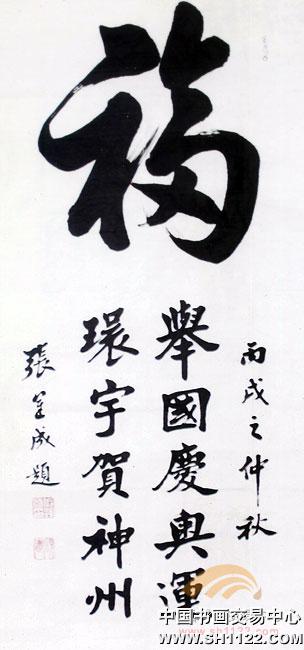 福
丙戌之仲秋
舉國慶奥運
環宇賀神州
張呈成題
中国书画交易中心
www.SH1122.COM